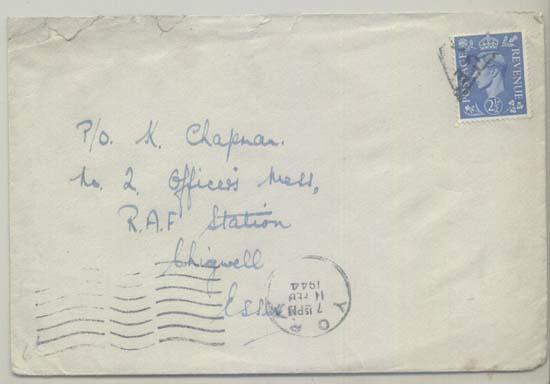 POSTAGE REVENUE
2½
P/o. K. Chapman.
No. 2. Officers Mess,
R.A.F. Station
Chigwell
Essex
YORK
7 15 PM
11 FEB
1944